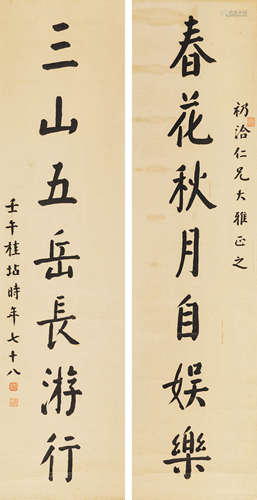 礽洽仁兄大雅正之
春花秋月自娛樂
三山五岳長游行
壬午桂坫時年七十八